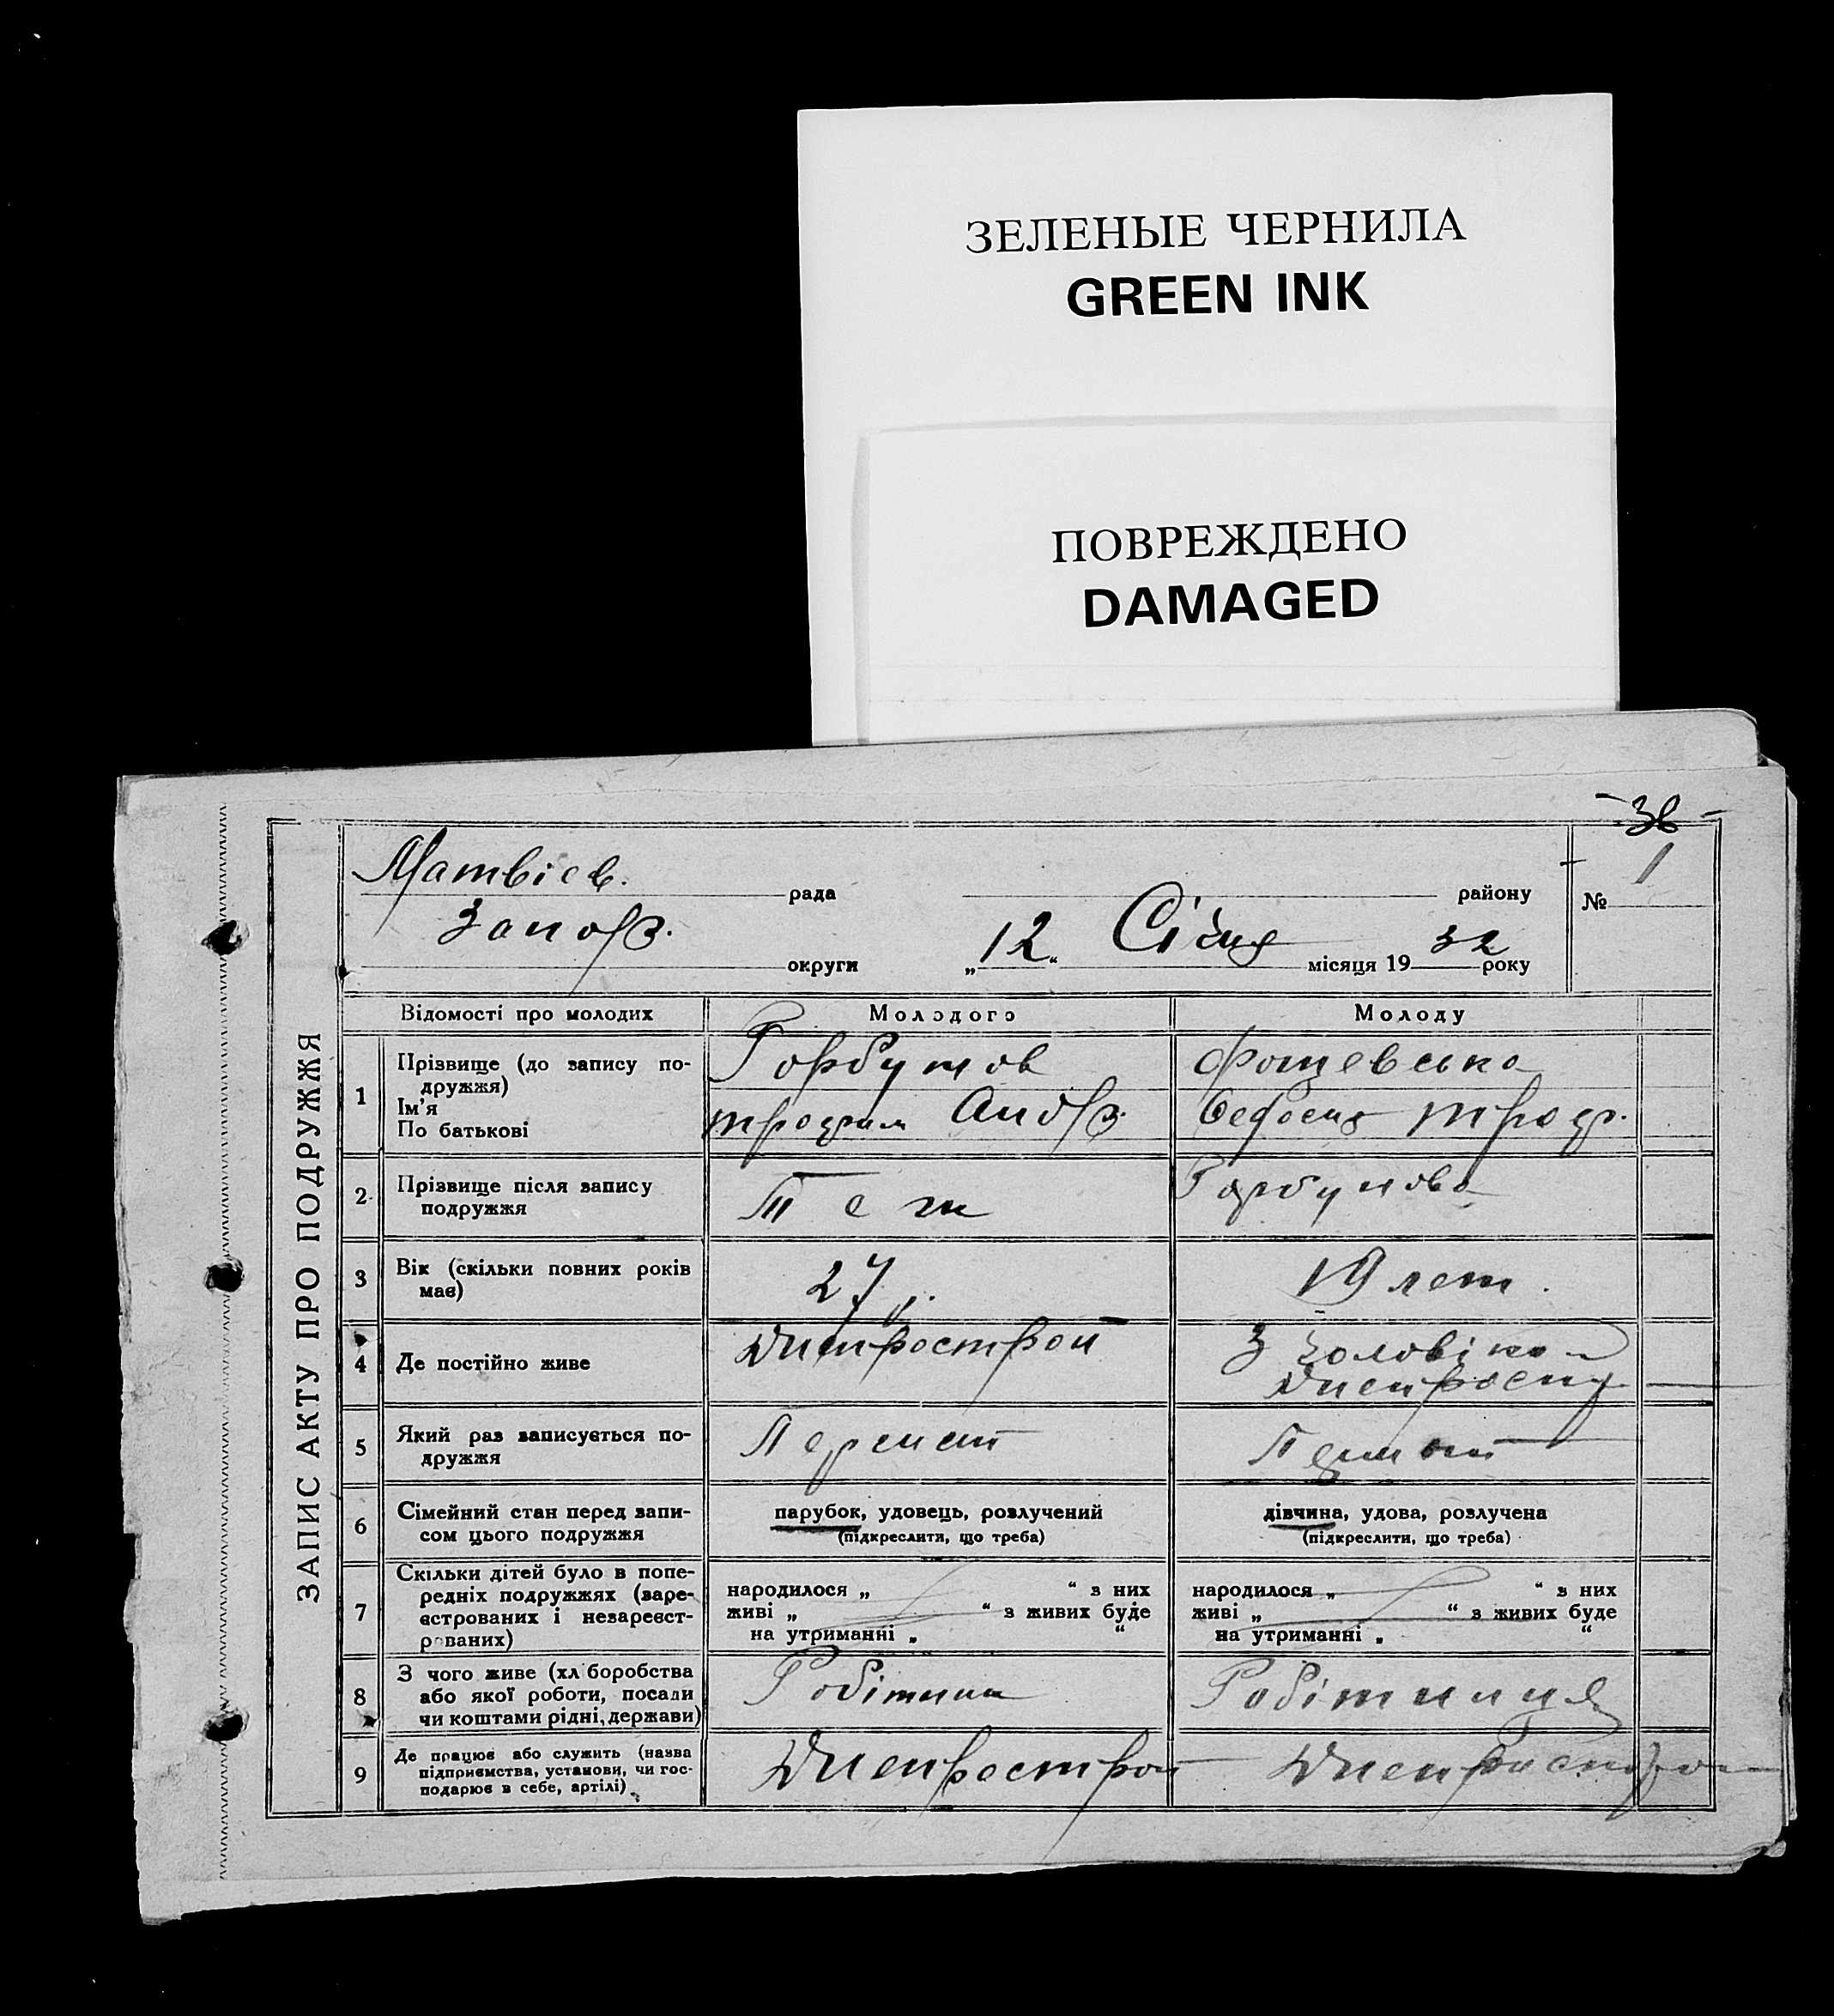 ЗЕЛЕНЫЕ ЧЕРНИЛА
GREEN INK
ПОВРЕЖДЕНО
DAMAGED
ЗАПИС АКТУ ПРО ПОДРУЖЖЯ
Матвіев. рада району № 1
Запор. округи „12“ Січня місяця 1932 року
Відомості про молодих Молодого Молоду
1 Прізвище (до запису по-
дружжя)
Ім'я
По батькові
Горбунов
Трофим Андр.
Трофи.
2 Прізвище після запису
подружжя
Теж
Горбунова
3 Вік (скільки повних років
має)
27 р.
19 лет.
4 Де постійно живе
Днепрострой
З чоловіком
Днепрострой
5 Який раз записується по-
дружжя
Первый
Первый
6 Сімейний стан перед запи-
сом цього подружжя
парубок, удовець, розлучений
(підкреслити, що треба)
дівчина, удова, розлучена
(підкреслити, що треба)
7 Скільки дітей було в попе-
редніх подружжях (заре-
єстрованих і незареєст-
рованих)
народилося „ “ з них
живі „ “ з живих буде
на утриманні „ “
народилося „ “ з них
живі „ “ з живих буде
на утриманні „ “
8 З чого живе (хліборобства
або якої роботи, посади
чи коштами рідні, держави)
Робітник
Робітниця
9 Де працює або служить (назва
підприємства, установи, чи гос-
подарює в себе, артілі)
Днепрострой
Днепрострой